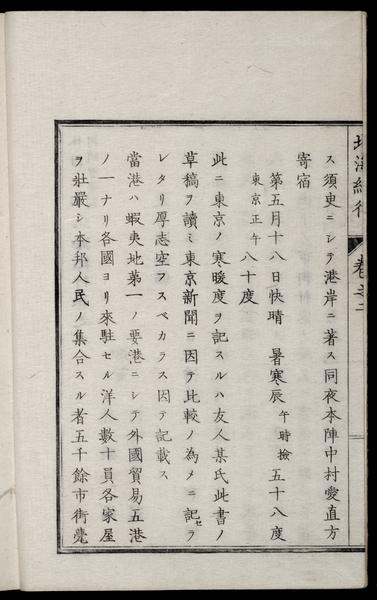 ス須臾ニシテ港岸ニ著ス同夜本陣中村愛直方
寄宿
第五月十八日快晴 暑寒辰 午時撿 五十八度
東京正午 八十度
此ニ東京ノ寒暖度ヲ記スルハ友人某氏此書ノ
草稿ヲ讀ミ東京新聞ニ因テ比較ノ為メニ記セラ
レタリ厚志空フスベカラス因テ記載ス
當港ハ蝦夷地第一ノ要港ニシテ外國貿易五港
ノ一ナリ各國ヨリ來駐セル洋人數十員各家屋
ヲ壯嚴シ本邦人民ノ集合スル者五千餘市街甍
卷之二